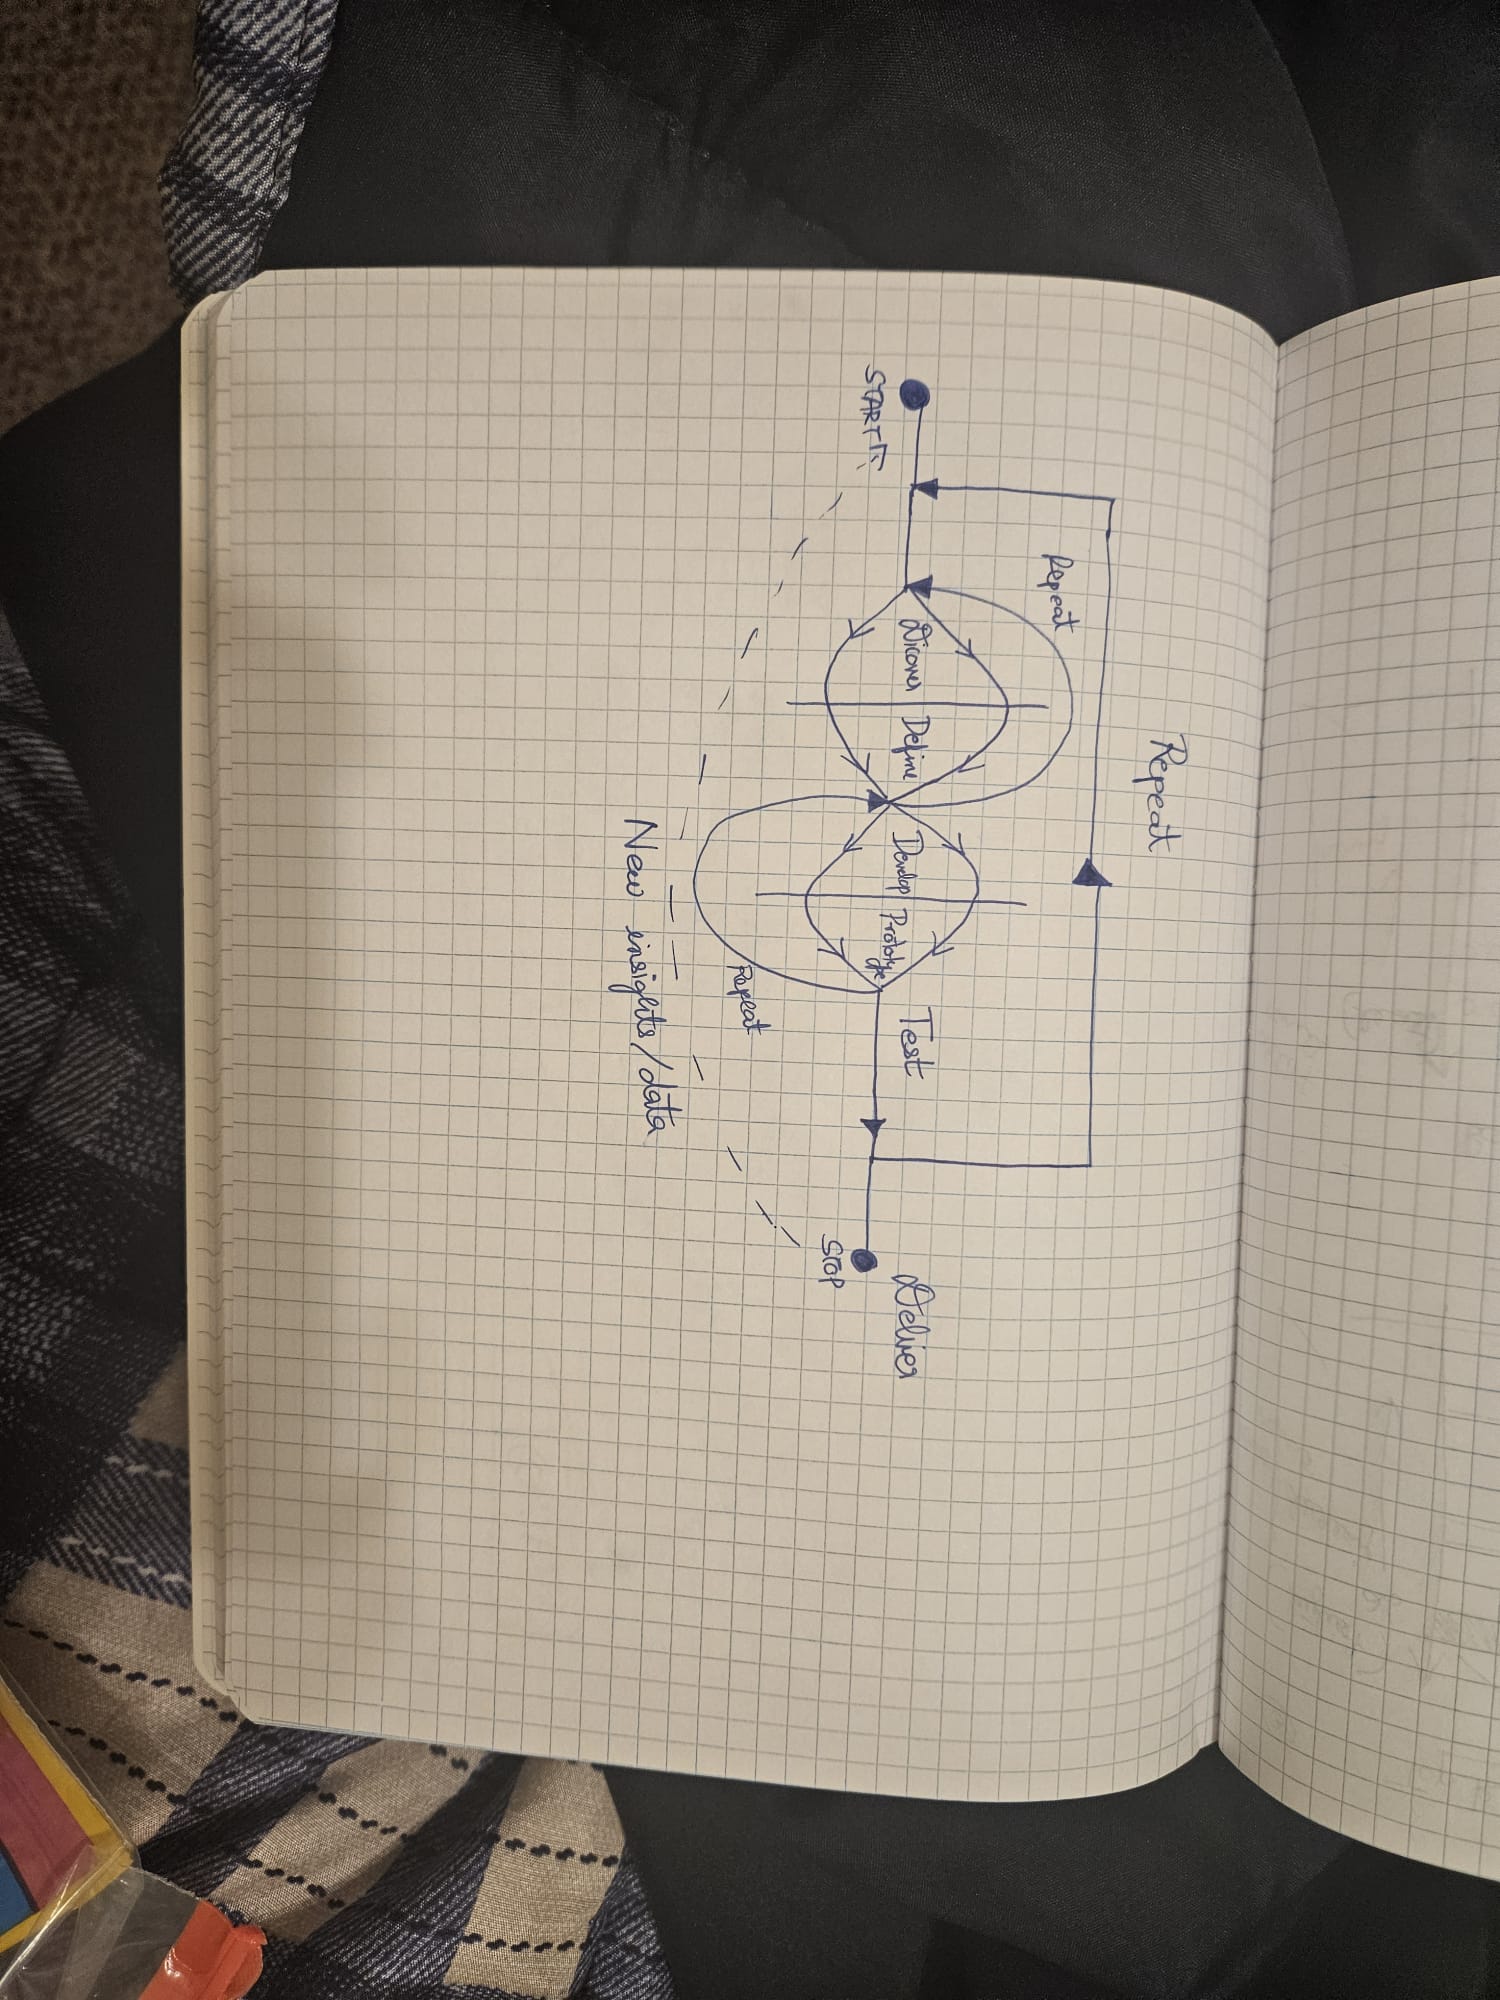 Repeat
Repeat
Dicover
Define
Develop
Prototype
Test
Deliver
START
STOP
Repeat
New insights/data